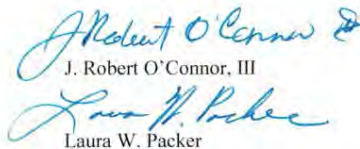 J Robert O'Connor III
J. Robert O'Connor, III
Laura W. Packer
Laura W. Packer